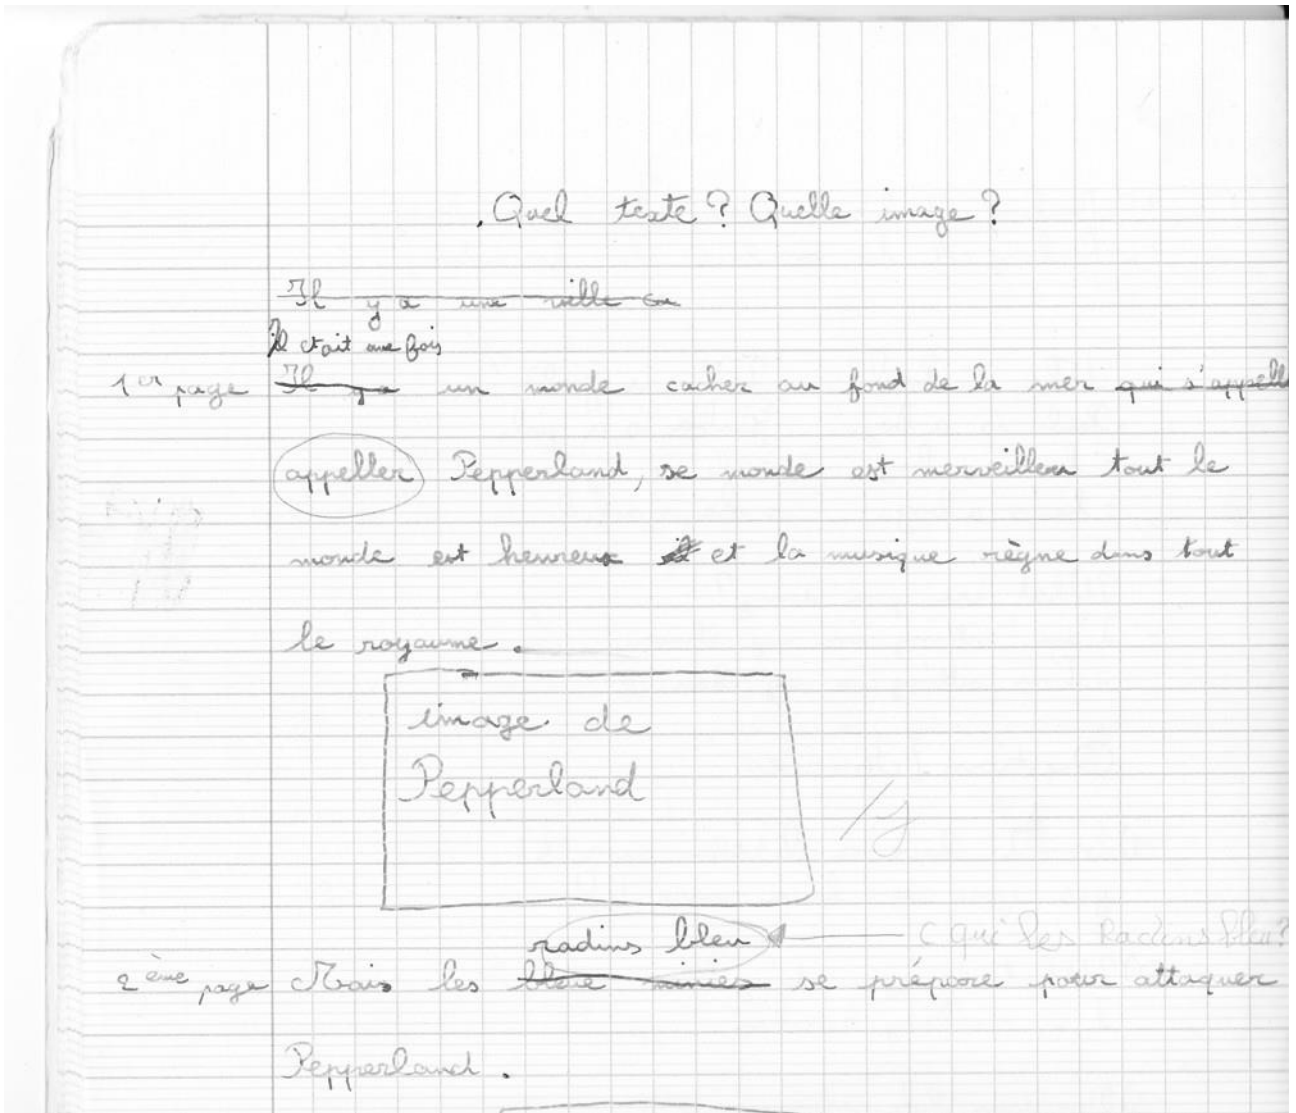 . Quel texte ? Quelle image ?
Il y a une ville
il etait une fois
1er page Il y a un monde cacher au fond de la mer qui s'appelle
appeller Pepperland, se monde est merveilleu tout le
monde est heureux et la musique règne dans tout
le royaume.
image de
Pepperland
radins bleu C qui les Radins bleu ?
2ème page Mais les bleue se prépare pour attaquer
Pepperland.